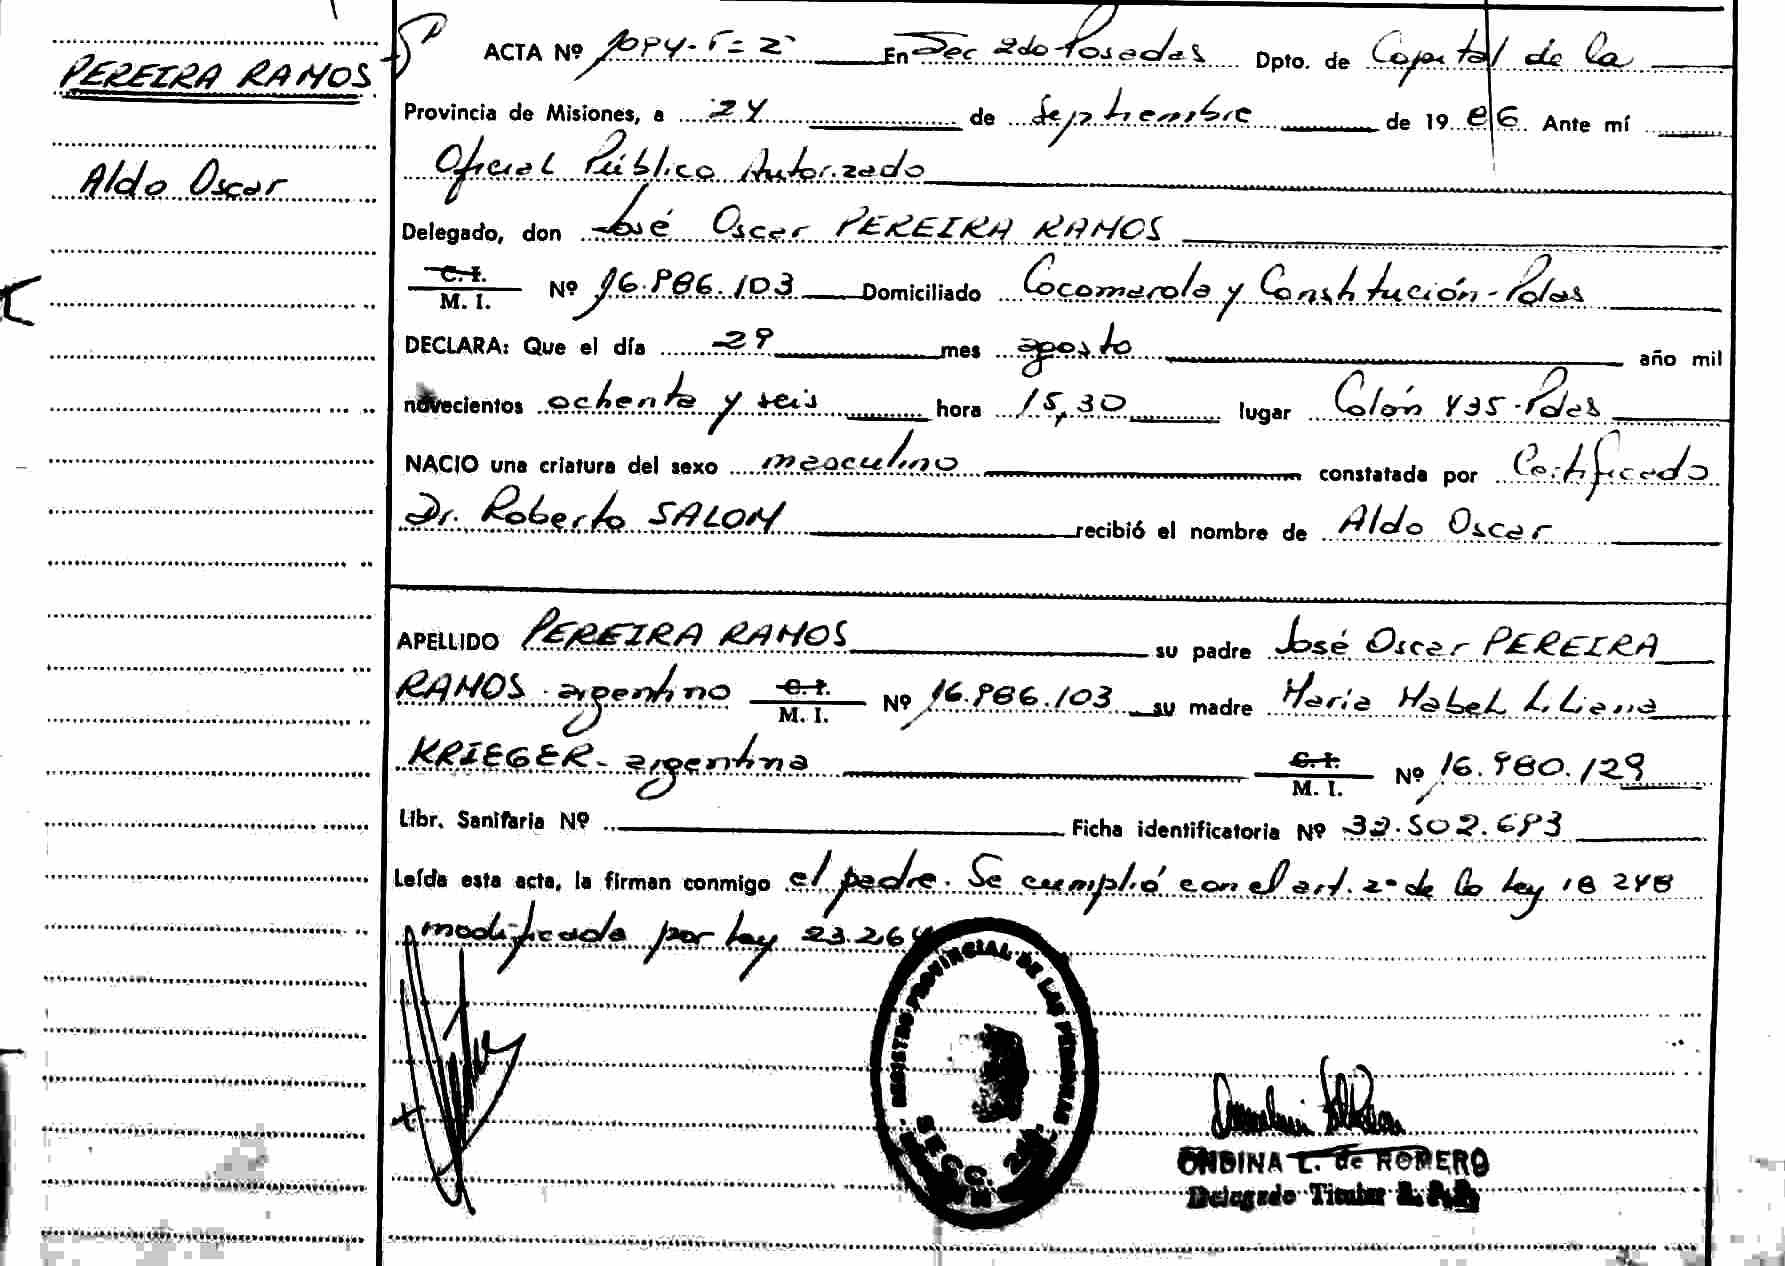 PEREIRA RAMOS
Aldo Oscar
ACTA Nº 1094-T=2° En Sec 2do Posadas Dpto. de Capital de la
Provincia de Misiones, a 24 de Septiembre de 19 86 Ante mí
Oficial Público Autorizado
Delegado, don José Oscar PEREIRA RAMOS
C. I.
M. I. Nº 16.986.103 Domiciliado Cocomarola y Constitución-Pdas
DECLARA: Que el día 29 mes agosto año mil
novecientos ochenta y seis hora 15,30 lugar Colón 435-Pdas
NACIO una criatura del sexo masculino constatada por Certificado
Dr. Roberto SALOM recibió el nombre de Aldo Oscar
APELLIDO PEREIRA RAMOS su padre José Oscar PEREIRA
RAMOS - argentino C. I. M. I. Nº 16.986.103 su madre Maria Mabel Liliana
KRIEGER - argentina C. I. M. I. Nº 16.980.129
Libr. Sanitaria Nº Ficha identificatoria Nº 32.502.693
Leída esta acta, la firman conmigo el padre. Se cumplió con el art. 2° de la Ley 18 248
modificada por Ley 23.264
REGISTRO PROVINCIAL DE LAS PERSONAS
SECC. 2da.
ONDINA L. de ROMERO
Delegado Titular